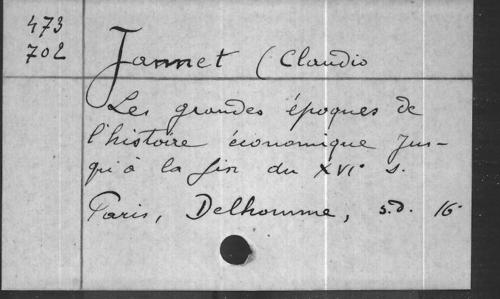 473
702
Jannet (Claudio
Les grandes époques de
l'histoire économique jus-
qu'à la fin du XVIe s.
Paris, Delhomme, s.d. 16°